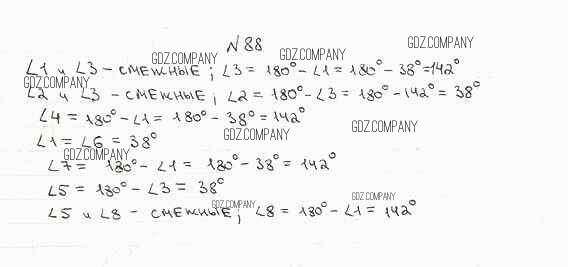 N 88
GDZ.COMPANY GDZ.COMPANY GDZ.COMPANY
∠1 и ∠3 - смежные; ∠3 = 180° - ∠1 = 180° - 38° = 142°
GDZ.COMPANY
∠2 и ∠3 - смежные; ∠2 = 180° - ∠3 = 180° - 142° = 38°
∠4 = 180° - ∠1 = 180° - 38° = 142°
GDZ.COMPANY GDZ.COMPANY
∠1 = ∠6 = 38°
GDZ.COMPANY
∠7 = 180° - ∠1 = 180° - 38° = 142°
∠5 = 180° - ∠3 = 38°
GDZ.COMPANY GDZ.COMPANY
∠5 и ∠8 - смежные; ∠8 = 180° - ∠1 = 142°